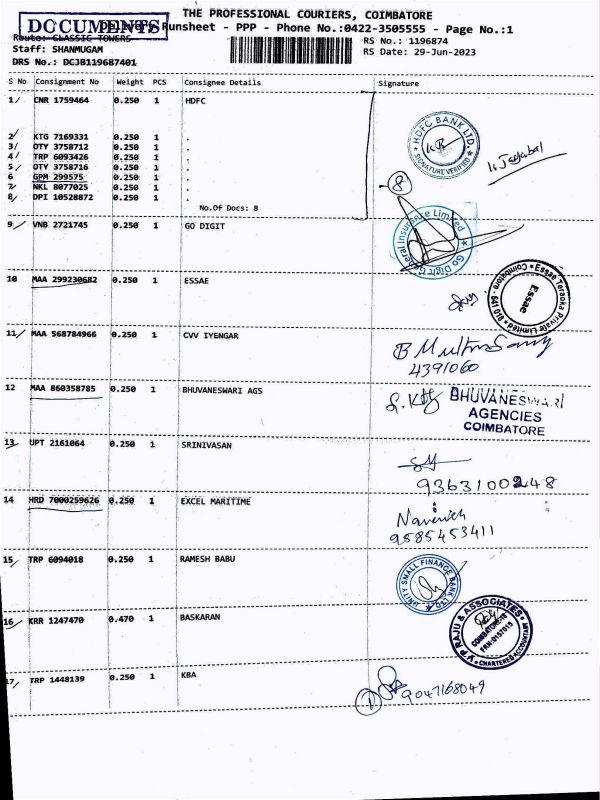 THE PROFESSIONAL COURIERS, COIMBATORE
DOCUMENTS
Delivery Runsheet - PPP - Phone No.:0422-3505555 - Page No.:1
Route: CLASSIC TOWERS
RS No.: 1196874
Staff: SHANMUGAM
RS Date: 29-Jun-2023
DRS No.: DCJB119687401
S No Consignment No Weight PCS Consignee Details Signature
1 CNR 1759464 0.250 1 HDFC
HDFC BANK LTD.
SIGNATURE VERIFIED
2 KTG 7169331 0.250 1 .
3 OTY 3758712 0.250 1 .
4 TRP 6093426 0.250 1 .
5 OTY 3758716 0.250 1 .
6 GPM 299575 0.250 1 .
7 NKL 8077025 0.250 1 .
8 DPI 10528872 0.250 1 .
8
No.Of Docs: 8
9 VNB 2721745 0.250 1 GO DIGIT
Go Digit General Insurance Limited
10 MAA 299230682 0.250 1 ESSAE
Essae Teraoka Private Limited
Coimbatore - 641 010
Essae
11 MAA 568784966 0.250 1 CVV IYENGAR
4391060
12 MAA 860358785 0.250 1 BHUVANESWARI AGS
BHUVANESWARI
AGENCIES
COIMBATORE
13 UPT 2161064 0.250 1 SRINIVASAN
9363100248
14 HRD 7000259626 0.250 1 EXCEL MARITIME
9585453411
15 TRP 6094018 0.250 1 RAMESH BABU
UNITY SMALL FINANCE BANK LTD
16 KRR 1247470 0.470 1 BASKARAN
V P RAJU & ASSOCIATES
COIMBATORE
FRN:015701S
CHARTERED ACCOUNTANT
17 TRP 1448139 0.250 1 KBA
1
9047168049